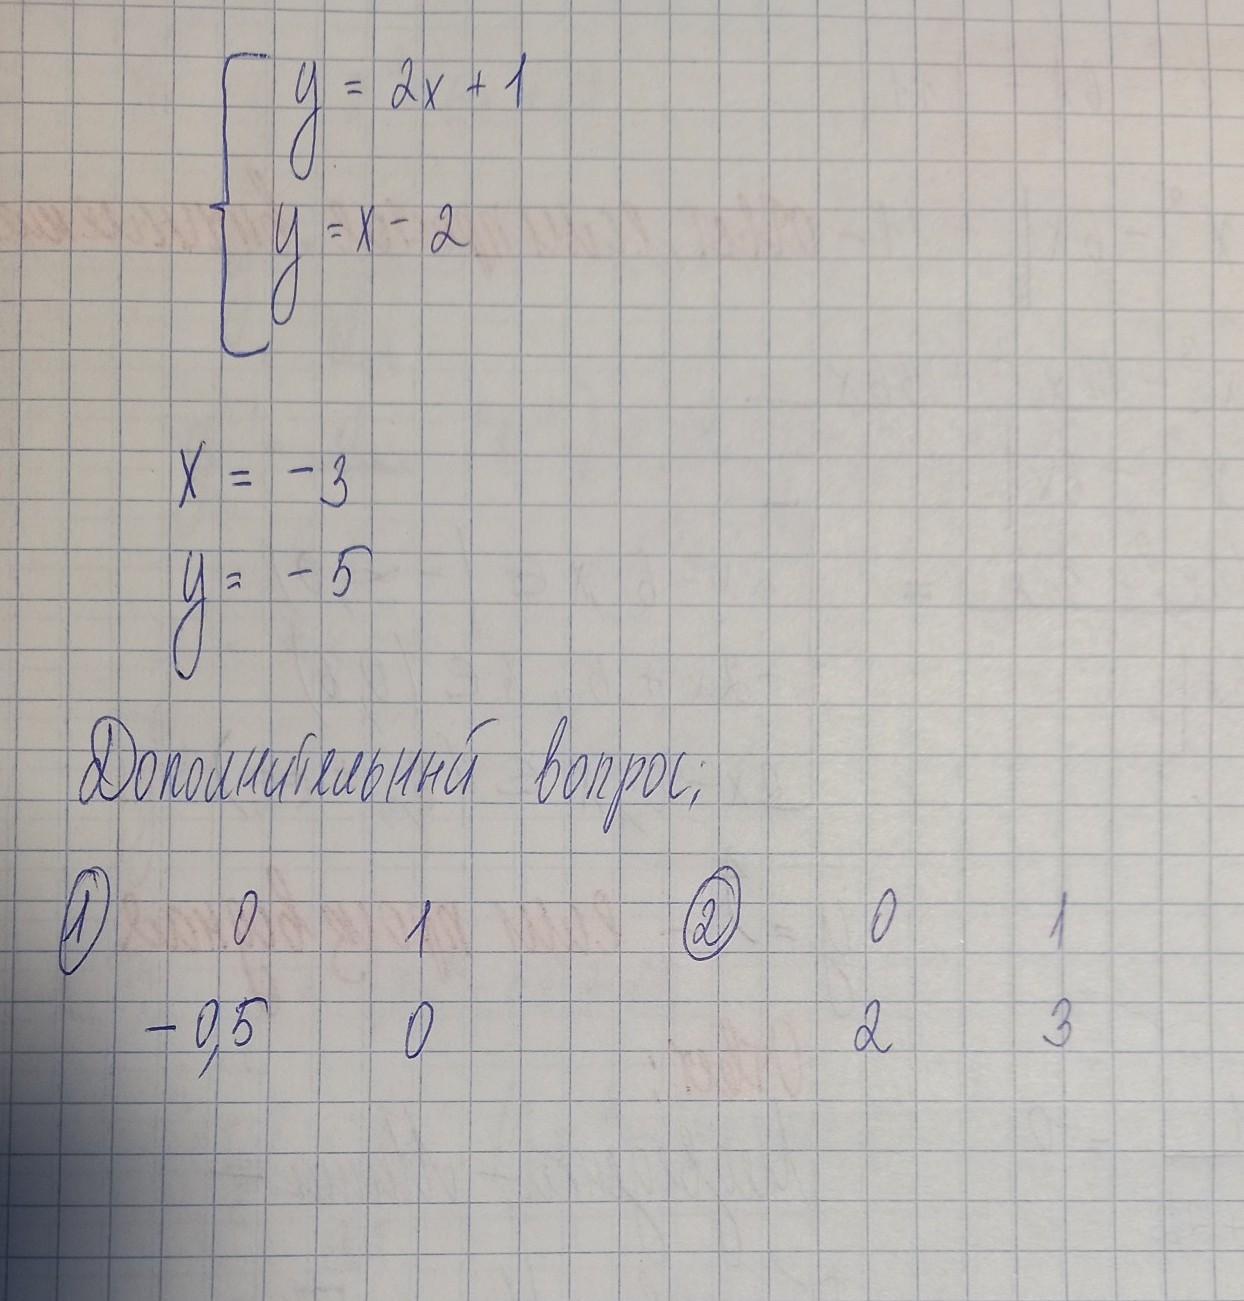 y = 2x + 1
y = x - 2
x = -3
y = -5
Дополнительный вопрос;
1 0 1 2 0 1
-0,5 0 2 3